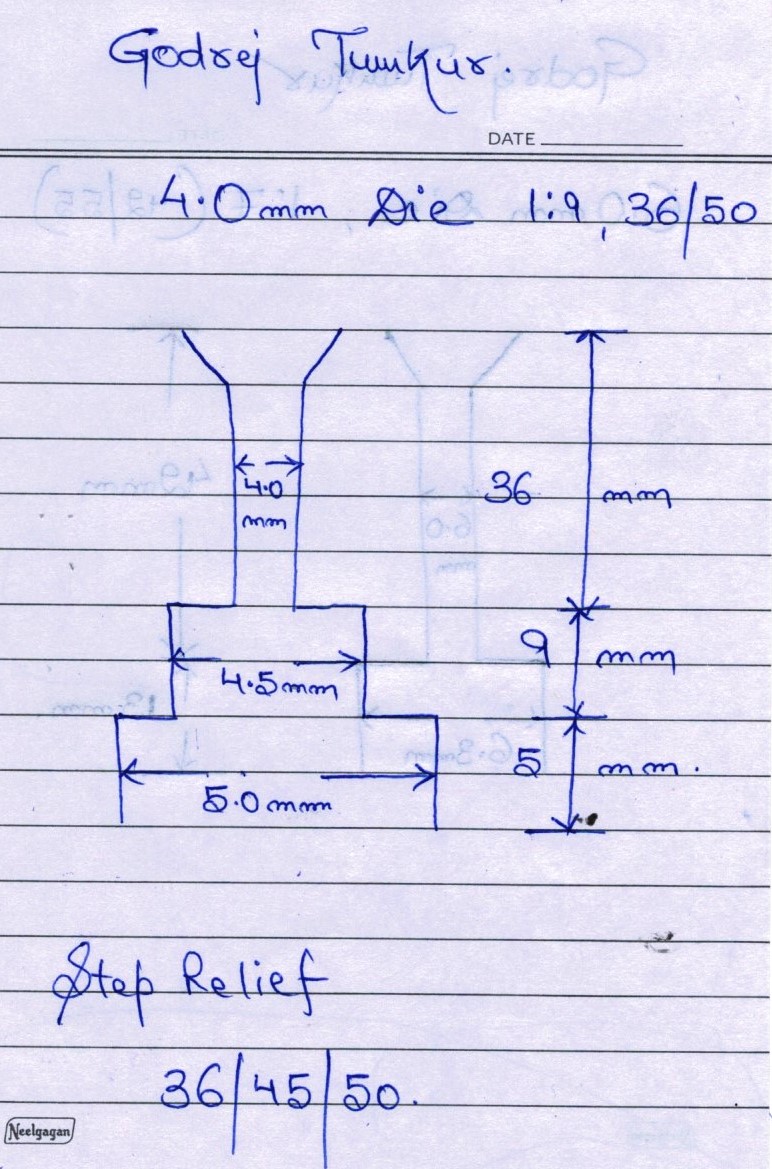 Godrej Tumkur.
DATE
4.0mm Die 1:9, 36/50
4.0
mm
36 mm
9 mm
4.5mm
5 mm.
5.0mm
Step Relief
36/45/50.
Neelgagan